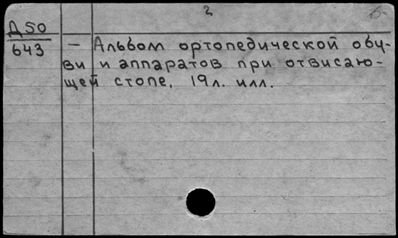 2
Д50
643
— Альбом ортопедической обу-
ви и аппаратов при отвисаю-
щей стопе. 19л. илл.